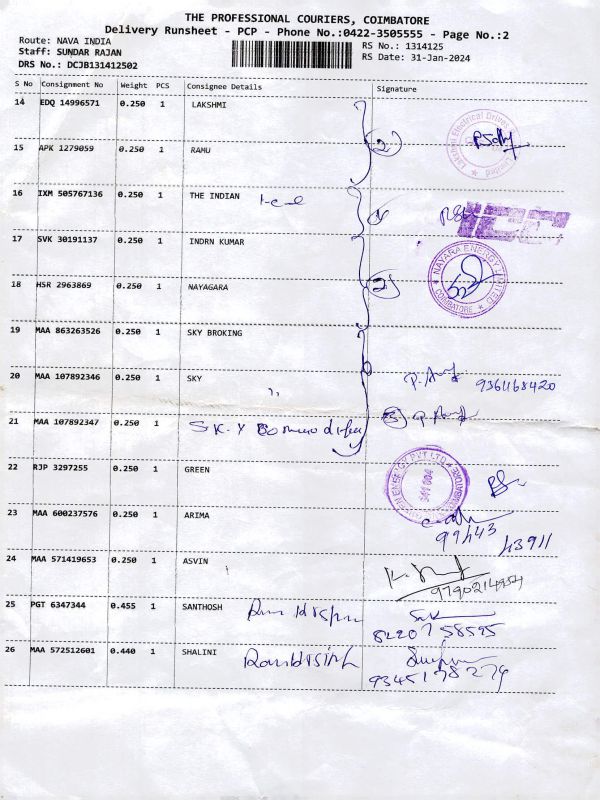 THE PROFESSIONAL COURIERS, COIMBATORE
Delivery Runsheet - PCP - Phone No.:0422-3505555 - Page No.:2
Route: NAVA INDIA
Staff: SUNDAR RAJAN
DRS No.: DCJB131412502
RS No.: 1314125
RS Date: 31-Jan-2024
S No Consignment No Weight PCS Consignee Details Signature
14 EDQ 14996571 0.250 1 LAKSHMI
15 APK 1279059 0.250 1 RAMU 2
16 IXM 505767136 0.250 1 THE INDIAN
17 SVK 30191137 0.250 1 INDRN KUMAR
NAYARA ENERGY LIMITED
COIMBATORE
18 HSR 2963869 0.250 1 NAYAGARA 2
19 MAA 863263526 0.250 1 SKY BROKING
20 MAA 107892346 0.250 1 SKY
21 MAA 107892347 0.250 1 SKY 3
22 RJP 3297255 0.250 1 GREEN
23 MAA 600237576 0.250 1 ARIMA 99443 43911
24 MAA 571419653 0.250 1 ASVIN
25 PGT 6347344 0.455 1 SANTHOSH
8220758595
26 MAA 572512601 0.440 1 SHALINI
9345178279